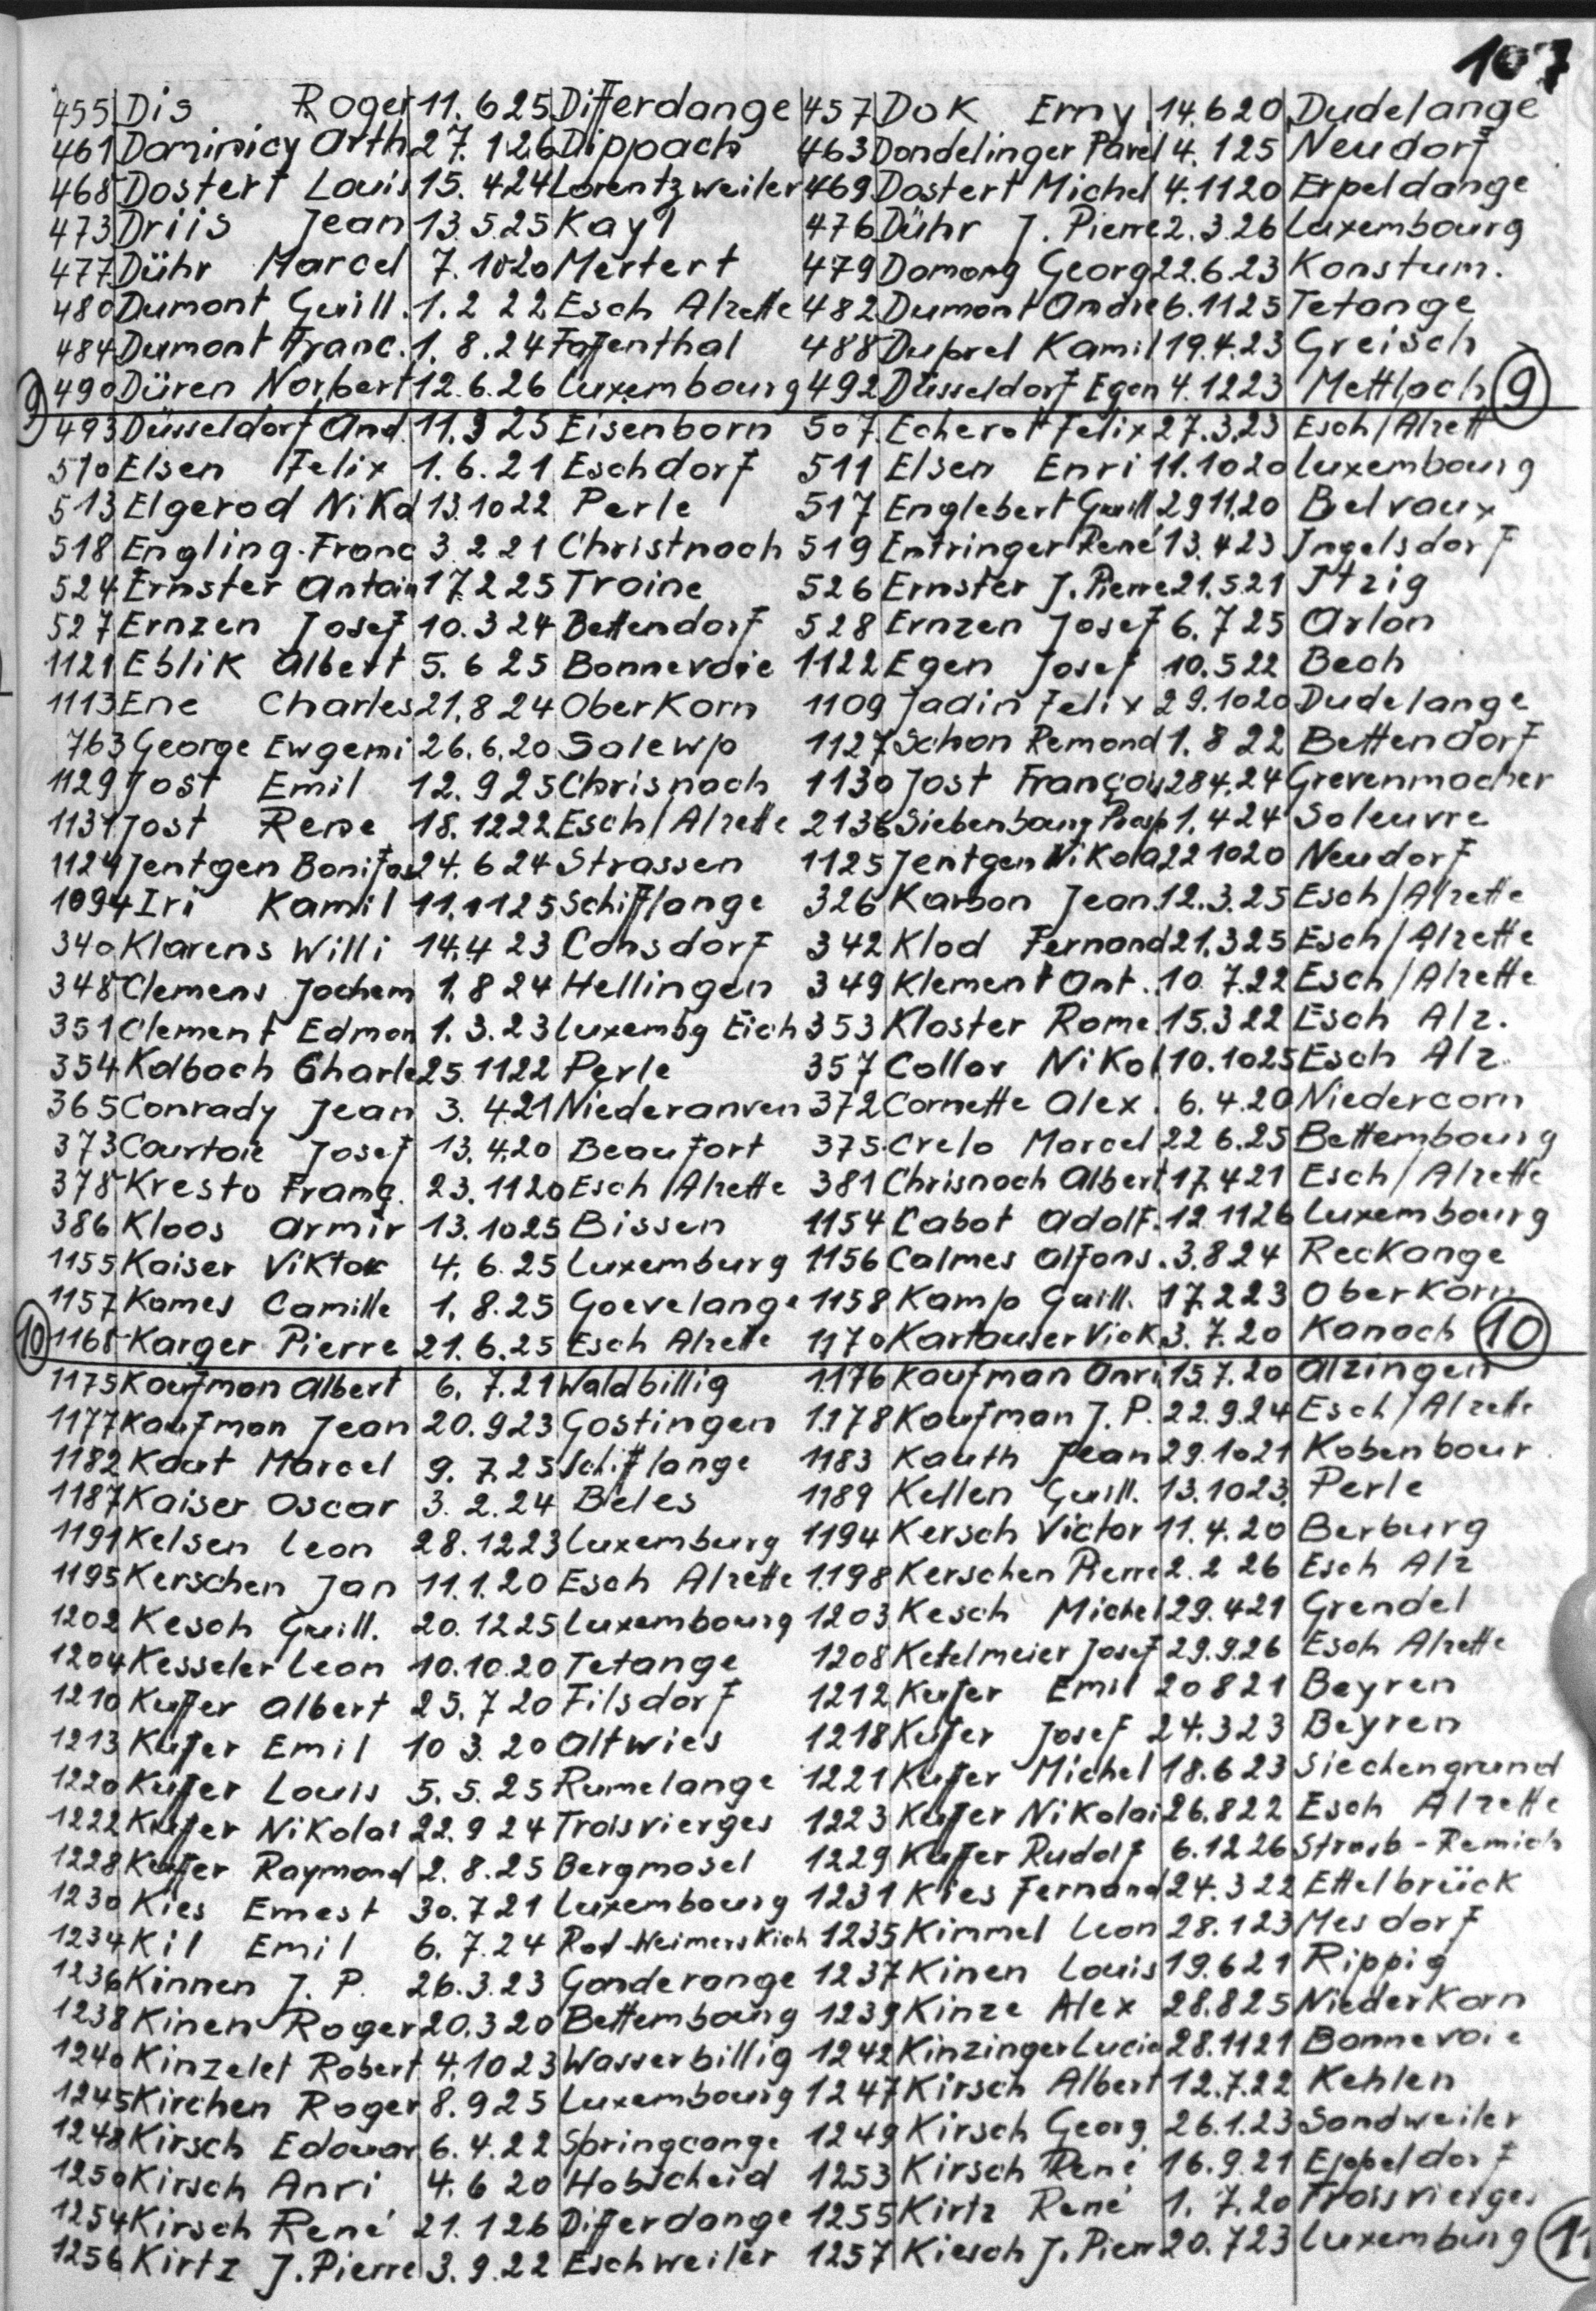 107
455 Dis Roger 11.6 25 Differdange 457 Dok Erny 14.6 20 Dudelange
461 Dominicy Arth 27.1 26 Dippach 463 Dondelinger Pavel 4.1 25 Neudorf
468 Dostert Louis 15.4 24 Lorentzweiler 469 Dostert Michel 4.11 20 Erpeldange
473 Driis Jean 13.5.25 Kayl 476 Dühr J. Pierre 2.3.26 Luxembourg
477 Dühr Marcel 7.10 20 Mertert 479 Domong Georg 22.6.23 Konstum.
480 Dumont Guill. 1.2 22 Esch Alzette 482 Dumont Andre 6.11 25 Tetange
484 Dumont Franc. 1.8.24 Faffenthal 488 Duprel Kamil 19.4.23 Greisch
9 490 Düren Norbert 12.6.26 Luxembourg 492 Düsseldorf Egon 4.12 23 Mettlach 9
493 Düsseldorf And. 11.3 25 Eisenborn 507 Echerot Felix 27.3.23 Esch/Alzett
510 Elsen Felix 1.6.21 Eschdorf 511 Elsen Enri 11.10 20 Luxembourg
513 Elgerod Nikol 13.10 22 Perle 517 Englebert Guill 29 11.20 Belvaux
518 Engling Franc 3.2 21 Christnach 519 Entringer René 13.4 23 Jngelsdorf
524 Ernster Antoin 17.2 25 Troine 526 Ernster J. Pierre 21.5.21 Jtzig
527 Ernzen Josef 10.3 24 Bettendorf 528 Ernzen Josef 6.7 25 Arlon
1121 Eblik Albert 5.6 25 Bonnevoie 1122 Egen Josef 10.5 22 Bech
1113 Ene Charles 21.8 24 Oberkorn 1109 Jadin Felix 29.10 20 Dudelange
763 George Ewgemi 26.6.20 Solewp 1127 Schon Remond 1.8 22 Bettendorf
1129 Jost Emil 12.9 25 Chrisnach 1130 Jost François 28 4.24 Grevenmacher
1131 Jost Rene 18.12 22 Esch/Alzette 2136 Siebenbourg Prosp 1.4 24 Soleuvre
1124 Jentgen Bonifas 24.6 24 Strassen 1125 Jentgen Nikola 22 10 20 Neudorf
1094 Iri Kamil 11.11 25 Schifflange 326 Karbon Jean 12.3.25 Esch/Alzette
340 Klarens Willi 14.4 23 Consdorf 342 Klod Fernond 21.3 25 Esch/Alzette
348 Clemens Jochem 1.8 24 Hellingen 349 Klement Ant. 10 7.22 Esch/Alzette
351 Clement Edmon 1.3.23 Luxembg Eich 353 Kloster Rome 15.3 22 Esch Alz.
354 Kolbach Charle 25 11 22 Perle 357 Collor Nikol 10.10 25 Esch Alz.
365 Conrady Jean 3.4.21 Niederanven 372 Cornette Alex. 6.4.20 Niedercorn
373 Courtoie Josef 13.4.20 Beaufort 375 Crelo Marcel 22 6.25 Bettembourg
378 Kresto Franç. 23.11 20 Esch/Alzette 381 Chrisnoch Albert 17.4 21 Esch/Alzette
386 Kloos Armir 13.10 25 Bissen 1154 Cabot Adolf. 12 11 26 Luxembourg
1155 Kaiser Viktor 4.6.25 Luxemburg 1156 Calmes Alfons. 3.8 24 Reckange
1157 Kames Camille 1.8.25 Goevelange 1158 Kamp Guill. 17.2 23 Oberkorn
10 1168 Karger Pierre 21.6.25 Esch Alzette 1170 Kartauser Vick 3.7.20 Kanach 10
1175 Kaufman Albert 6.7.21 Waldbillig 1176 Kaufman Anri 15 7.20 Alzingen
1177 Kaufman Jean 20.9 23 Gostingen 1178 Kaufman J.P. 22.9.24 Esch/Alzette
1182 Kaut Marcel 9.7.25 Schifflange 1183 Kauth Jean 29.10 21 Kobenbour
1187 Kaiser Oscar 3.2.24 Beles 1189 Kellen Guill. 13.10 23 Perle
1191 Kelsen Leon 28.12 23 Luxemburg 1194 Kersch Victor 11.4.20 Berburg
1195 Kerschen Jan 11.1.20 Esch Alzette 1198 Kerschen Pierre 2.2 26 Esch Alz
1202 Kesch Guill. 20.12 25 Luxembourg 1203 Kesch Michel 29.4 21 Grendel
1204 Kesseler Leon 10.10.20 Tetange 1208 Ketelmeier Josef 29.9.26 Esch Alzette
1210 Kuffer Albert 25.7 20 Filsdorf 1212 Kuffer Emil 20 8 21 Beyren
1213 Kuffer Emil 10 3.20 Altwies 1218 Kuffer Josef 24.3 23 Beyren
1220 Kuffer Louis 5.5.25 Rumelange 1221 Kuffer Michel 18.6 23 Siechengrund
1222 Kuffer Nikolai 22.9 24 Troisvierges 1223 Kuffer Nikolai 26.8 22 Esch Alzette
1228 Kuffer Raymond 2.8.25 Bergmosel 1229 Kuffer Rudolf 6.12 26 Strasb-Remich
1230 Kies Ernest 30.7 21 Luxembourg 1231 Kies Fernand 24.3 22 Ettelbrück
1234 Kil Emil 6.7.24 Rod-Weimerskich 1235 Kimmel Leon 28.1 23 Mesdorf
1236 Kinnen J. P. 26.3.23 Gonderange 1237 Kinen Louis 19.6 21 Rippig
1238 Kinen Roger 20.3 20 Bettembourg 1239 Kinze Alex 28.8 25 Niederkorn
1240 Kinzelet Robert 4.10 23 Wasserbillig 1242 Kinzinger Lucie 28.11 21 Bonnevoie
1245 Kirchen Roger 8.9 25 Luxembourg 1247 Kirsch Albert 12.7.22 Kehlen
1248 Kirsch Edouar 6.4.22 Springcange 1249 Kirsch Georg 26.1.23 Sandweiler
1250 Kirsch Anri 4.6 20 Hobscheid 1253 Kirsch René 16.9.21 Eppeldorf
1254 Kirsch René 21.1 26 Differdange 1255 Kirtz René 1.7.20 Troisvierges
1256 Kirtz J. Pierre 3.9.22 Eschweiler 1257 Kiesch J. Pierr 20.7 23 Luxemburg 11